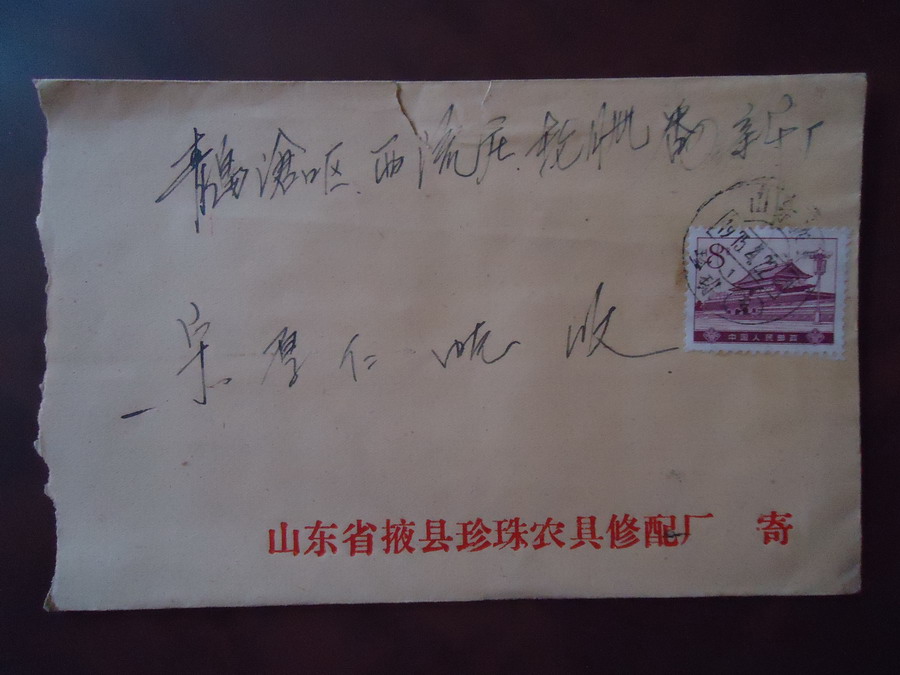 青岛沧口区西流庄轮胎翻新厂
8
1975.4.22
中国人民邮政
宋厚仁 收
山东省掖县珍珠农具修配厂 寄